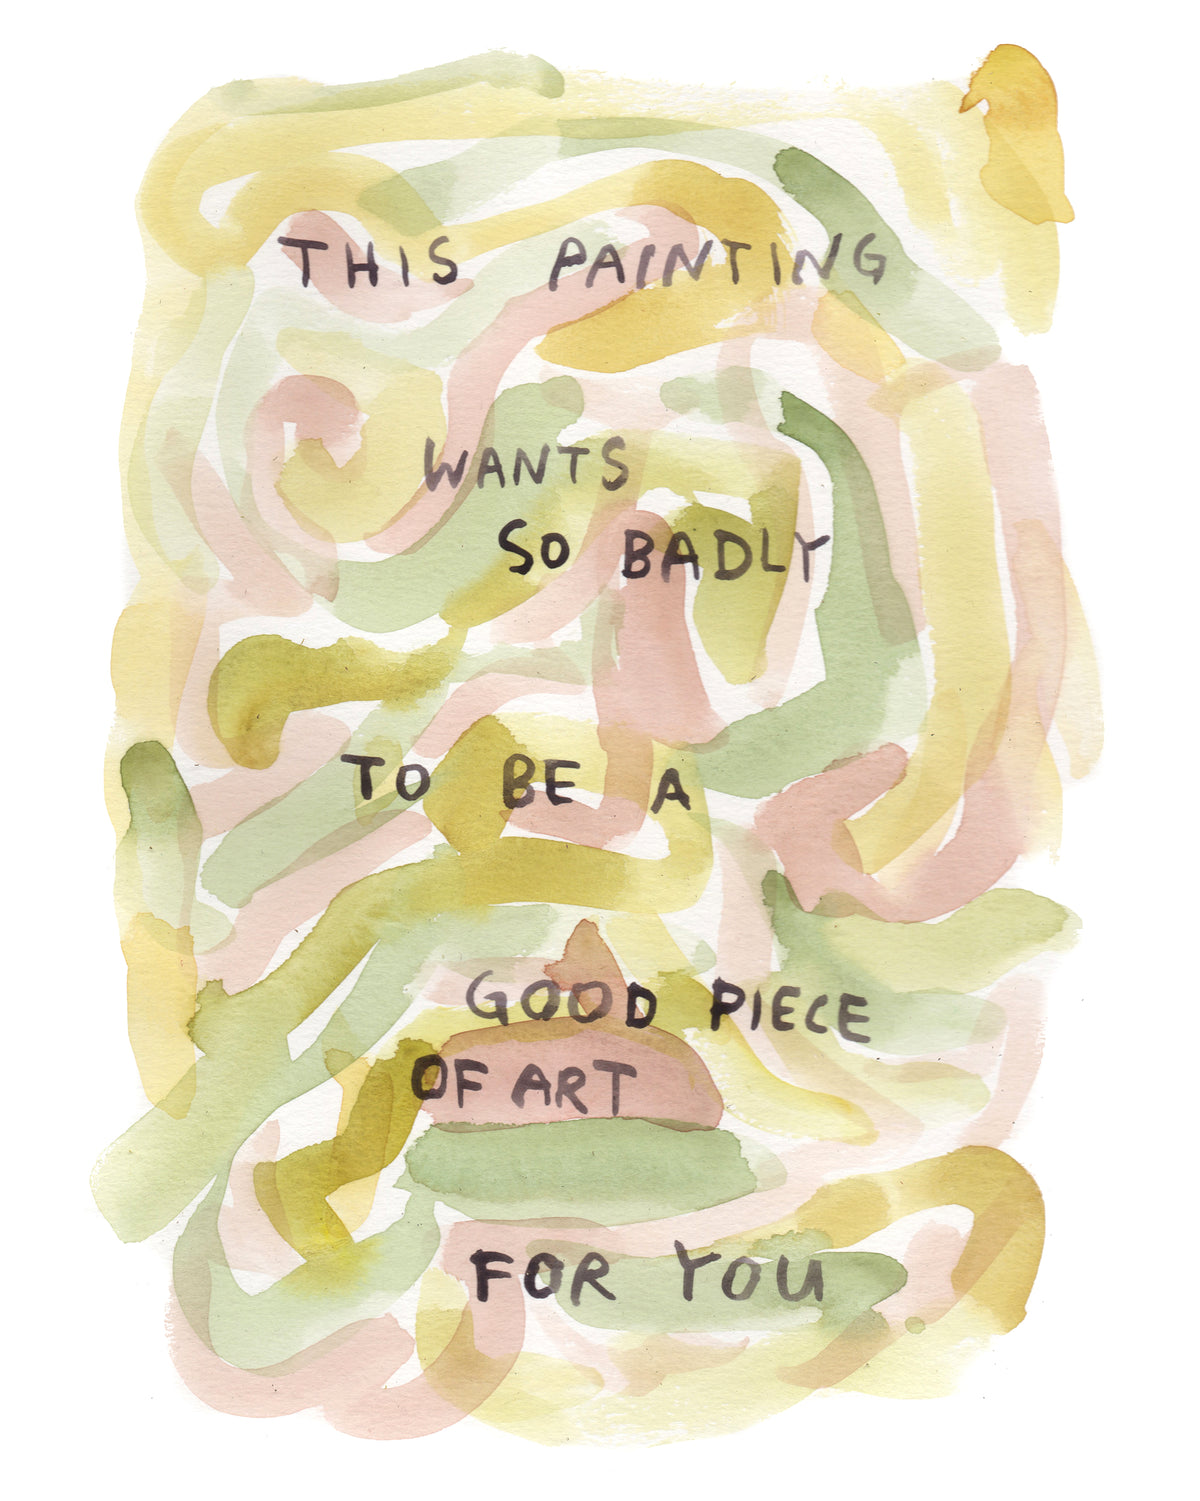 THIS PAINTING
WANTS
SO BADLY
TO BE A
GOOD PIECE
OF ART
FOR YOU